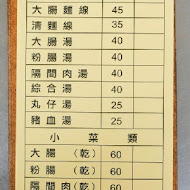 大腸麵線 45
清麵線 35
大腸湯 40
粉腸湯 40
隔間肉湯 40
綜合湯 40
丸仔湯 25
豬血湯 25
小菜類
大腸（乾） 60
粉腸（乾） 60
隔間肉（乾） 60